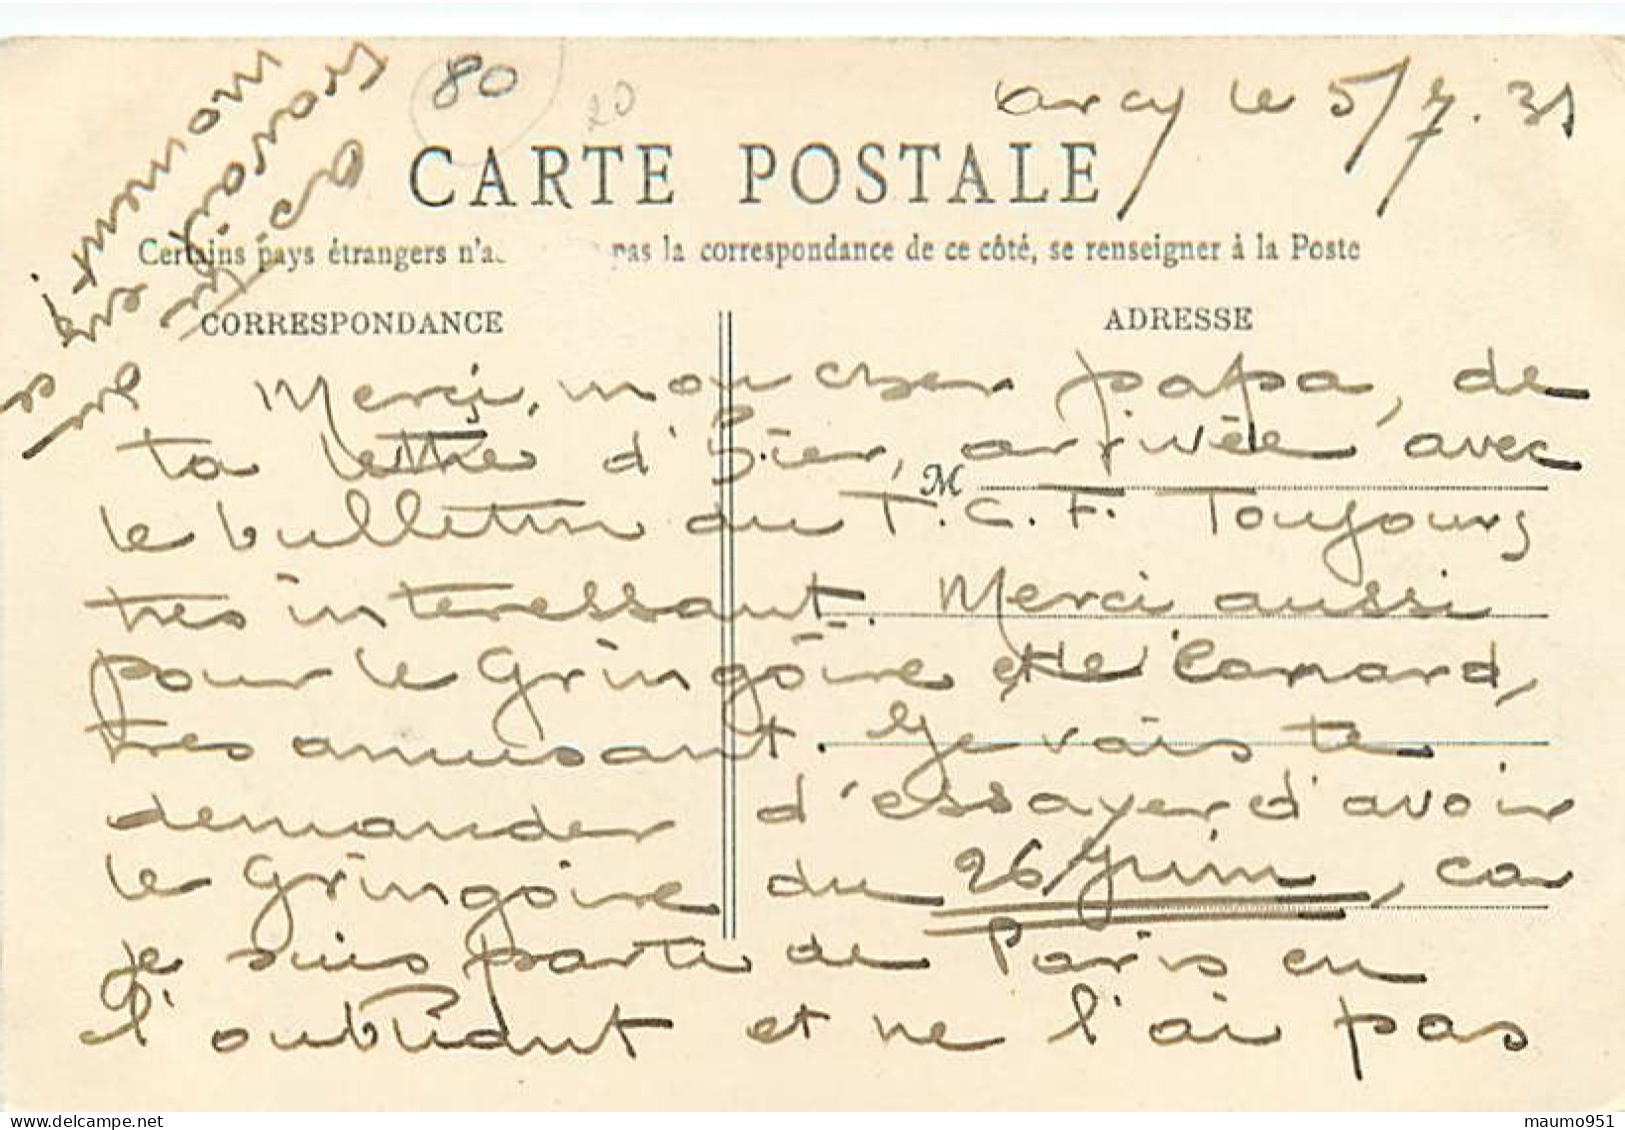 80
20
arcy le 5/7.31
CARTE POSTALE
Certains pays étrangers n'ac pas la correspondance de ce côté, se renseigner à la Poste
CORRESPONDANCE
ADRESSE
Merci, mon cher papa, de
ta lettre d'hier, arrivée avec
M
le bulletin du T.C.F. Toujours
très intéressant. Merci aussi
pour le Gringoire et le Canard,
très amusant. Je vais te
demander d'essayer d'avoir
le Gringoire du 26 juin, car
je suis partie de Paris en
l'oubliant et ne l'ai pas
maumo951